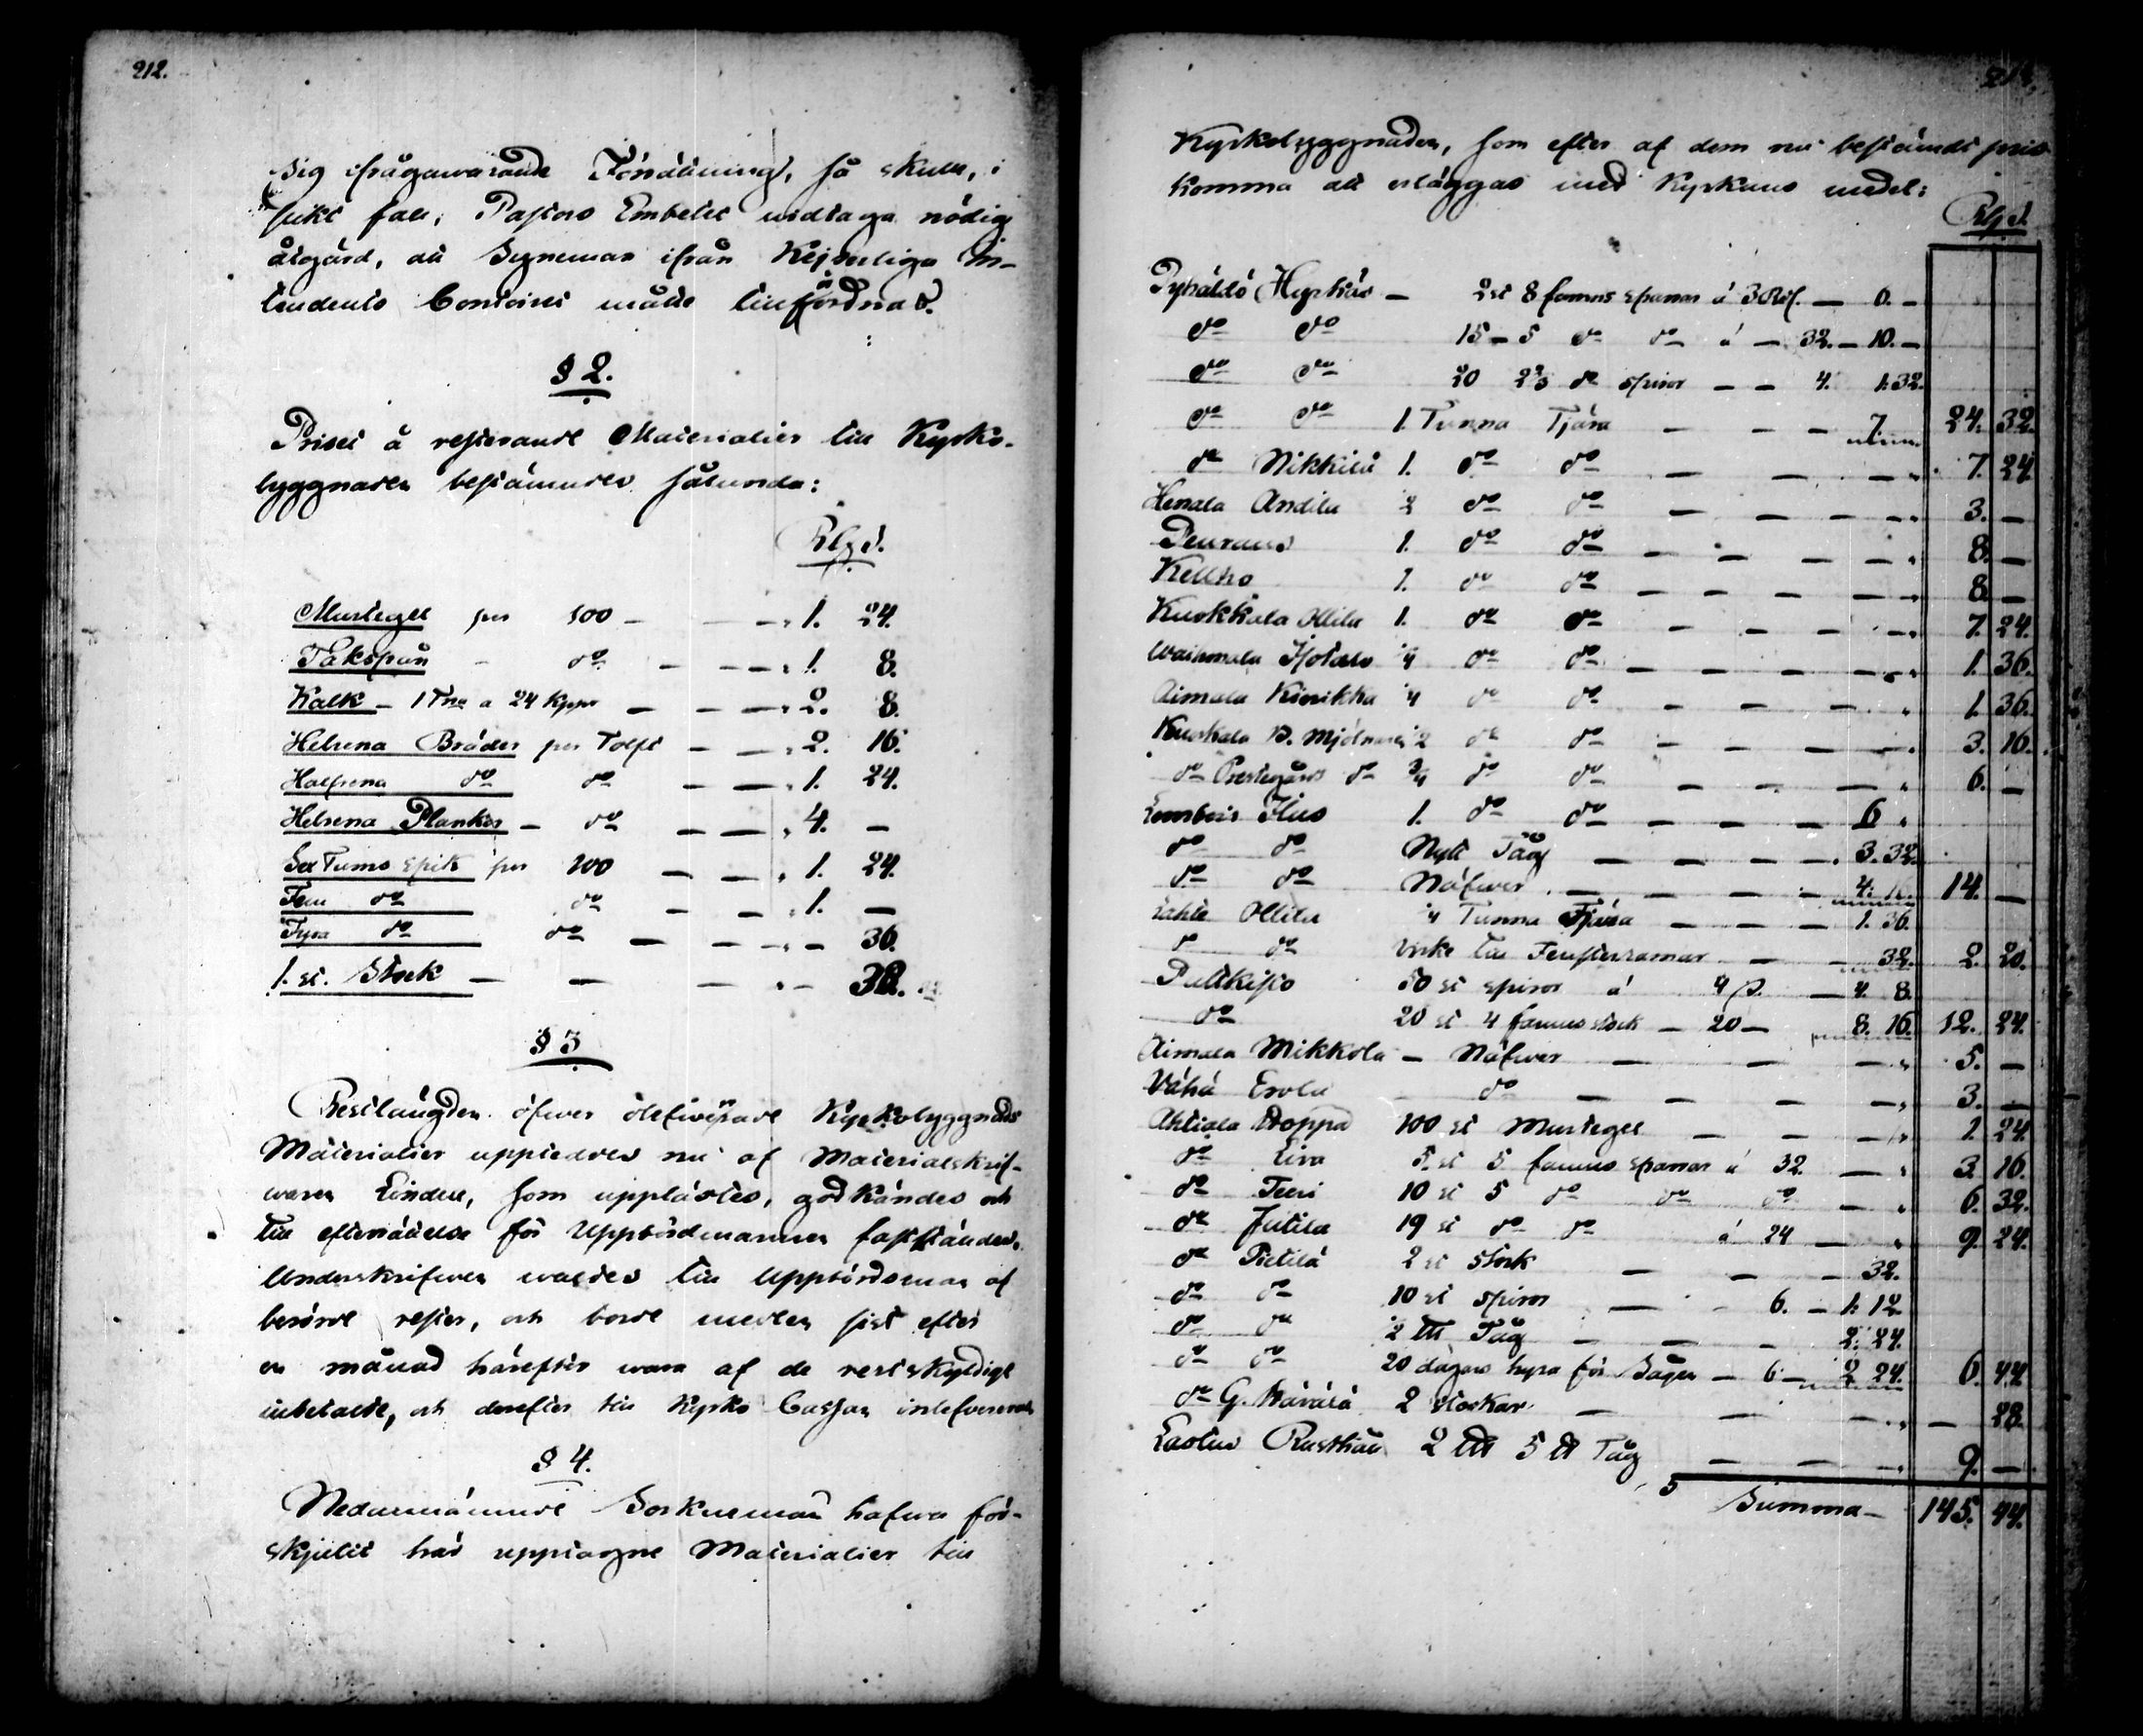 212.
sig ifrågawarande Förrättning, så skulle, i
sikt fall, Pastors Embetet widtaga nödig
åtgärd, att Syneman ifrån Kejserliga In-
tendents Contoiret måtte tillförordnas.
§ 2.
Priset å resterande Materialier till Kyrko-
byggnaden bestämdes sålunda:
Rbgd.
Murtegel per 100 — — — 1. 24.
Takspån - do — — — 1. 8.
Kalk — 1 Tna a 24 Kppr — — — 2. 8.
Helrena Bräder per Tolft — — 2. 16.
Halfrena do do — — 1. 24.
Helrena Plankor — do — — 4. —
Sex Tums spik per 100 — — 1. 24.
Fem do do — — 1. —
Fyra do do — — — — 36.
1. st. Stock — — — — 32.
§ 3
Restlängden öfwer olefwererade Kyrkobyggnads
Materialier uppteddes nu af Materialskrif-
waren Lindell, som upplästes, godkändes och
till efterrättelse för Uppbördsmannen fastställdes.
Underskrifwen waldes till Uppbördsman af
berörde rester, och borde medlen sist efter
en månad härefter wara af de restskyldige
inbetalte, och derefter till Kyrko Cassan inlefwererade
§ 4.
Nedannämnde Socknemän hafwa för-
skjutit här upptagne Materialier till
213.
Kyrkobyggnaden, som efter af dem nu bestämdt pris
komma att erläggas med Kyrkans medel:
Rbgd.
Pyhältö Hyrkäs — 2 st 8 famns sparrar á 3 Rd. — 6. —
do do 15 — 5 do do á — 32. — 10. —
do do 20 2⅔ do spiror — — 4. 1. 32.
do do 1. Tunna Tjära — — — 7. 24. 32.
do Nikkilä 1. do do — — — 7. 24.
Henala Andila ½ do do — — — 3. —
Peuraus 1. do do — — — 8. —
Kellho 1. do do — — — 8. —
Kuokkala Ollila 1. do do — — — 7. 24.
Waihmala Isotalo ¼ do do — — — 1. 36.
Aimala Kinikka ¼ do do — — — 1. 36.
Kuokala B. Mjölnare ½ do do — — — 3. 16.
do Prestegårds do ¾ do do — — — 6. —
Lembois Hius 1. do do — — — 6
do do Nytt Tåg — — — 3. 32.
do do Näfwer — — — 4. 16. 14. —
Lahti Ollila ¼ Tunna Tjära — — — 1. 36.
do do Virke till Fensterramar — — 32. 2. 20.
Pultkisto 50 st spiror á 4 s. — 4. 8.
do 20 st 4 famns stock — 20 — 8. 16. 12. 24.
Aimala Mikkola — Näfwer — — — 5. —
Vähä Erola do — — — 3. —
Ahtiala Hoppa 100 st Murtegel — — — 1. 24.
do Eira 5. st 5. famns sparrar á 32 — 3. 16.
do Teeri 10 st 5 do do do — 6. 32.
do Jutila 19 st do do á 24 — 9. 24.
do Pietilä 2 st Stock — — — 32.
do do 10 st spiror — 6. — 1. 12
do do ½ ltt Tåg — — — 2. 24.
do do 20 dagars hyra för Sågen — 6. — 2 24. 6. 44
do G. Wävälä 2 stockar — — — — 28.
Lastus Rusthåll 2 ltt 5 tt Tåg — — — 9. —
Summa — 145. 44.